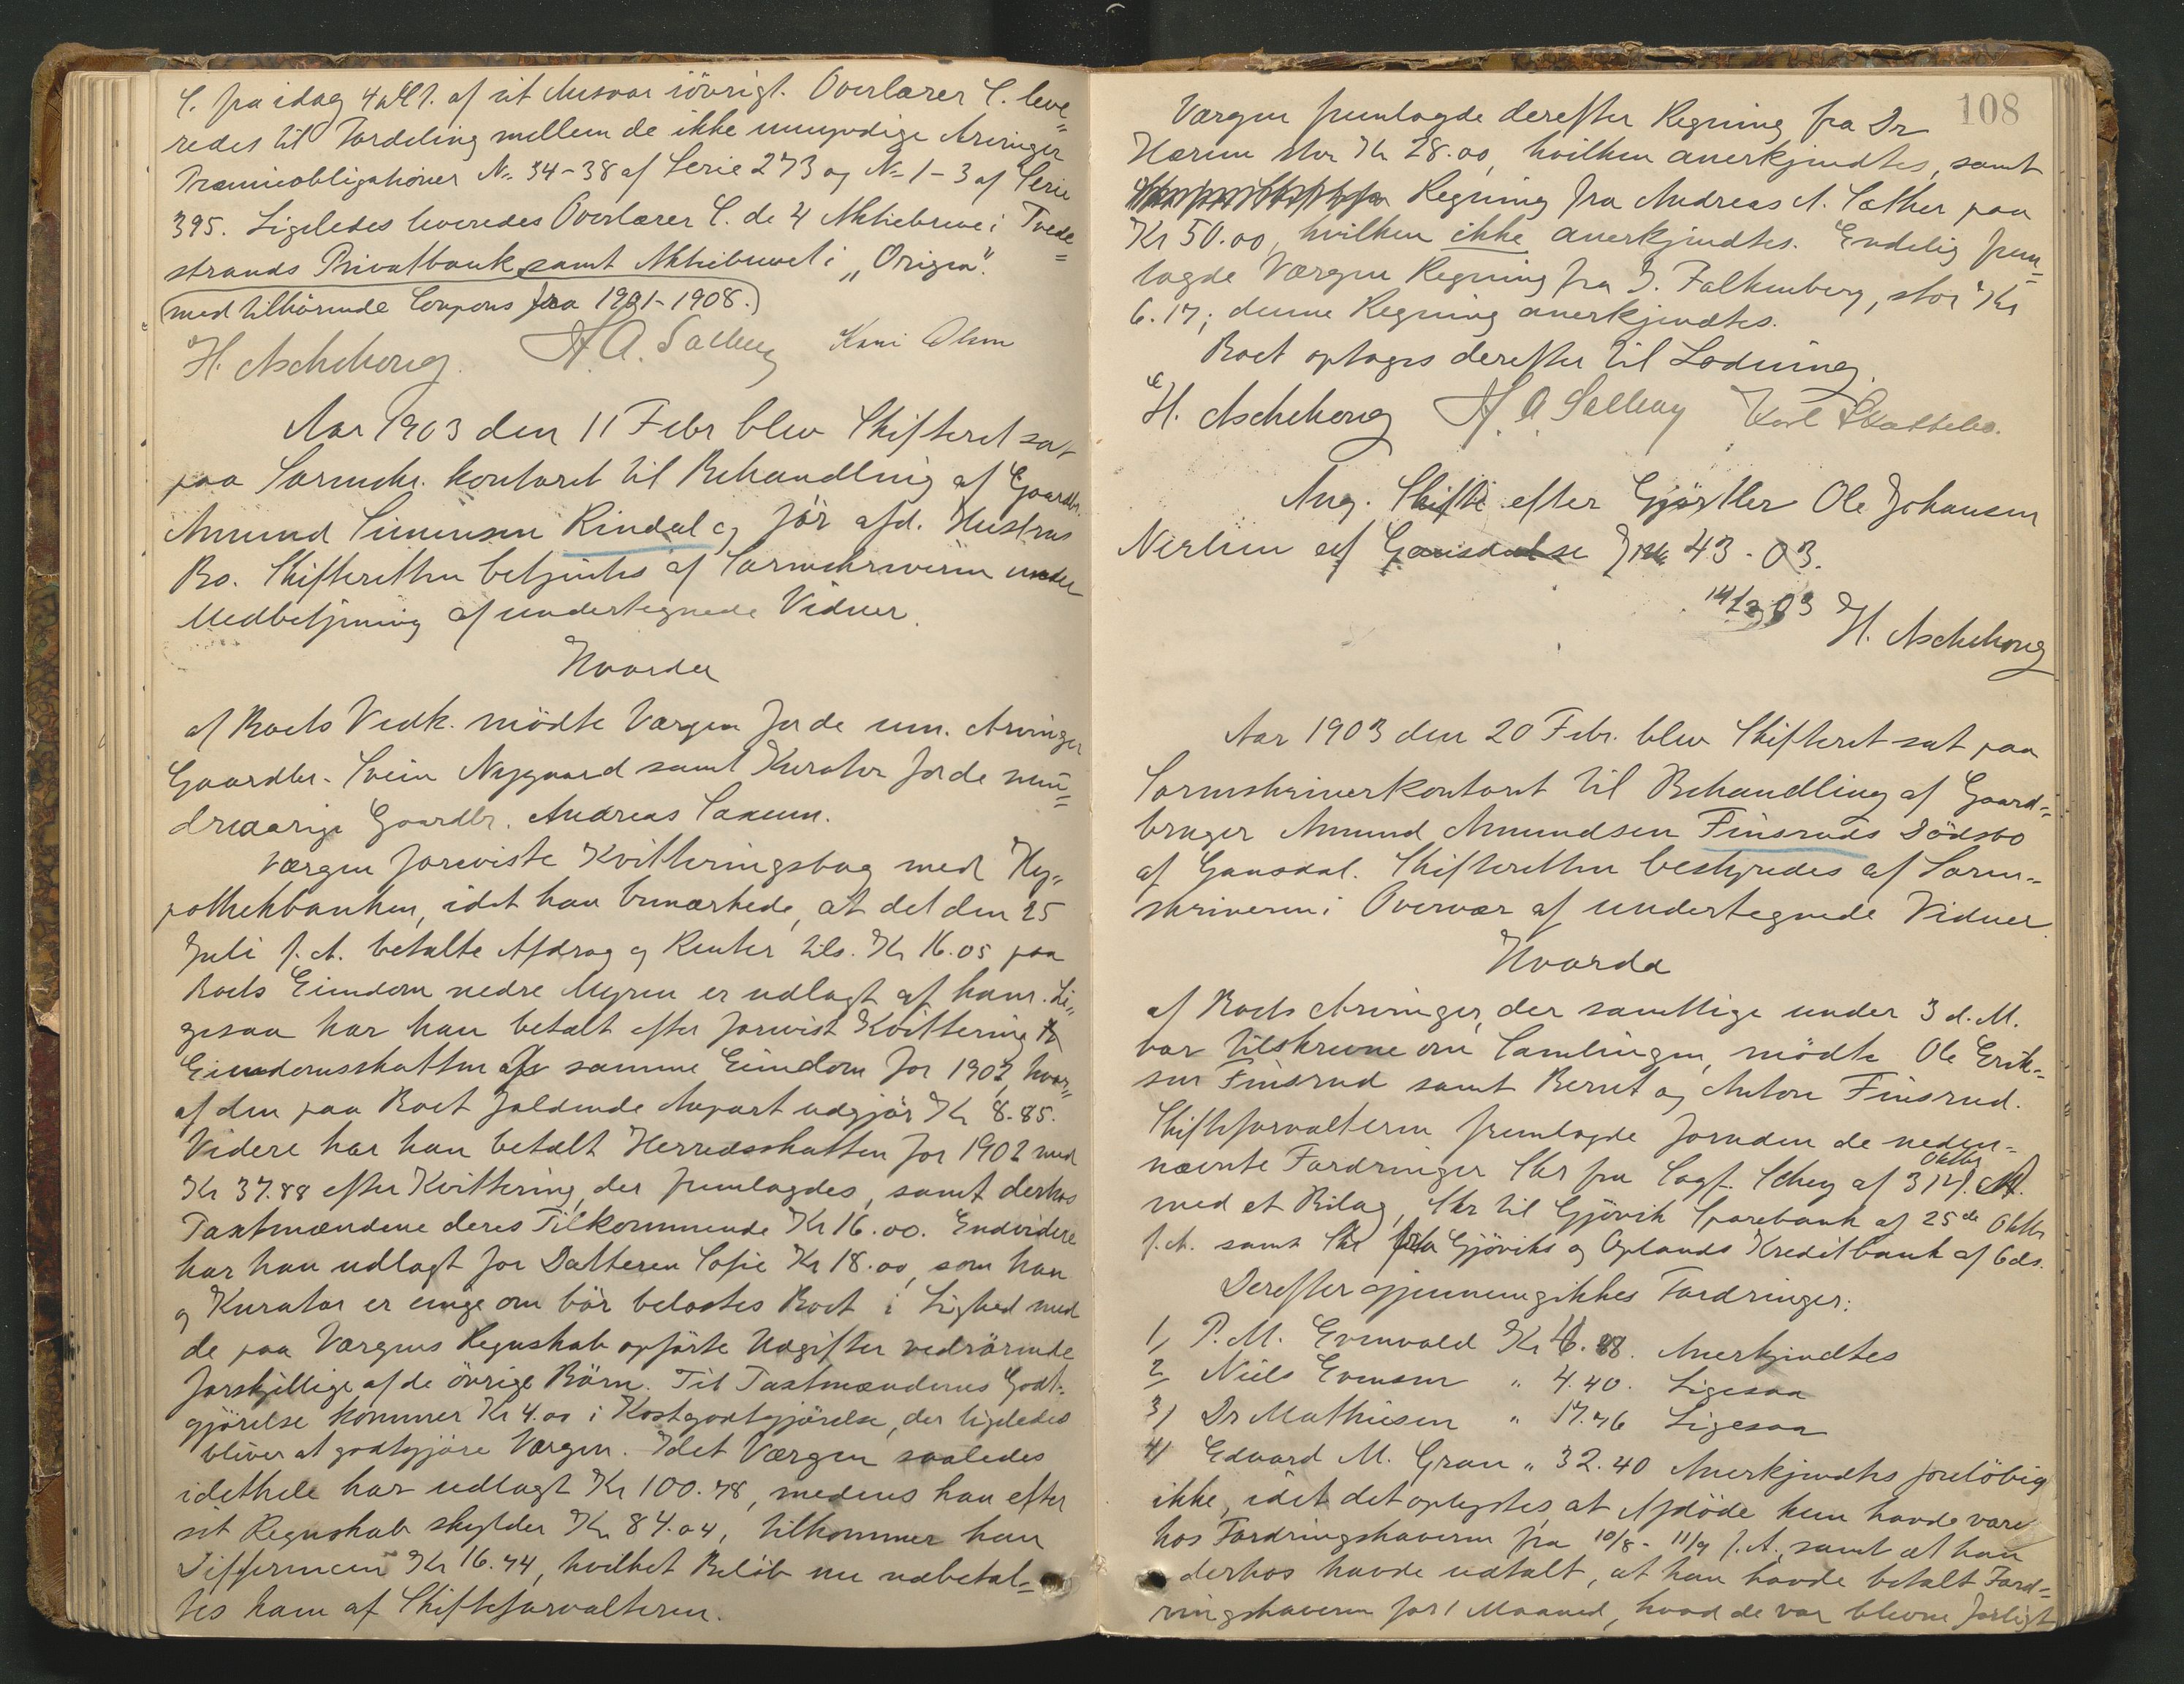 S. fra idag 4 af sit Ansvar iövrigt. Overlærer S. leve=
redes til Fordeling mellem de ikke umyndige Arvinger
Præmieobligationer No 34-38 af Serie 273 og No 1-3 af Serie
395. Ligeledes leveredes Overlærer S. de 4 Aktiebreve i Tvede=
strands Privatbank samt Aktiebrevet i „Origen".
(med tilhörende Coupons fra 1901-1908.)
H. Aschehoug. H A. Solberg
Aar 1903 den 11 Febr blev Skifteret sat
paa Sornskr. kontoret til Behandling af Gaardbr.
Amund Simensen Rindal og för afd. Hustrus
Bo. Skifteretten betjentes af Sornskriveren under
Medbetjening af undertegnede Vidner.
Hvorda
af Boets Vedk. mödte Værgen for de um. Arvinger
Gaardbr. Svein Nygaard samt Kurator for de min=
dreaarige Gaardbr. Andreas Saxum.
Værgen foreviste Kvitteringsbog med Hy=
pothekbanken, idet han bemærkede, at det den 25
Juli f. A. betalte Afdrag og Renter tils. Kr 16.05 paa
Boets Eiendom nedre Myren er udlagt af ham. Li=
gesaa har han betalt efter forevist Kvittering
Eiendomsskatten af samme Eiendom for 1902, hvor=
af den paa Boet faldende Anpart udgjör Kr 8.85.
Videre har han betalt Herredsskatten for 1902 med
Kr 37.88 efter Kvittering, der fremlagdes, samt derhos
Taxtmændene deres Tilkommende Kr 16.00. Endvidere
har han udlagt for Datteren Sofie Kr 18.00, som han
og Kurator er enige om bör belastes Boet i Lighed med
de paa Værgens Regnskab opförte Udgifter vedrörende
forskjellige af de övrige Börn. Til Taxtmændenes Godt=
gjörelse kommer Kr 4.00 i Kostgodtgjörelse, der ligeledes
bliver at godtgjöre Værgen. Idet Værgen saaledes
idethele har udlagt Kr 100.78, medens han efter
sit Regnskab skylder Kr 84.04, tilkommer han
Differencen Kr 16.74, hvilket Belöb nu udbetal=
tes ham af Skifteforvalteren.
108
Værgen fremlagde derefter Regning fra Dr
Hærem stor Kr 28.00, hvilken anerkjendtes, samt
Regning fra Andreas A. Sæther paa
Kr 50.00, hvilken ikke anerkjendtes. Endelig frem=
lagde Værgen Regning fra J. Falkenberg, stor Kr
6.17; denne Regning anerkjendtes.
Boet optoges derefter til Lodning.
H. Aschehoug H. A Solberg Karl Skattebo.
Ang. Skifte efter Gjörtler Ole Johansen
Nerlien af Gausdal se JNo 43-03.
14/2 03 H. Aschehoug
Aar 1903 den 20 Febr. blev Skifteret sat paa
Sornskriverkontoret til Behandling af Gaard=
bruger Amund Amundsen Finsruds Dödsbo
af Gausdal. Skifteretten bestyredes af Soren=
skriveren i Overvær af undertegnede Vidner.
Hvorda
af Boets Arvinger, der samtlige under 3 d. M.
var tilskrevne om Samlingen, mödte Ole Erik=
sen Finsrud samt Bernt og Anton Finsrud.
Skifteforvalteren fremlagde foruden de neden=
nævnte Fordringer Skr fra Sagf. Schey af 31 Oktbr f. A.
med et Bilag, Skr til Gjövik Sparebank af 25de Oktbr
f. A. samt Skr fra Gjöviks og Oplands Kreditbank af 6 ds.
Derefter gjennemgikkes Fordringer:
1, P. M. Evenvold Kr 6.88. Anerkjendtes
2, Niels Evensen " 4.40. Ligesaa
3) Dr Mathiesen " 17.76 Ligesaa
4) Edvard M. Gran " 32.40 Anerkjendtes forelöbig
ikke, idet det oplystes, at Afdöde kun havde vært
hos Fordringshaveren fra 10/8 - 11/9 f. A., samt at han
derhos havde udtalt, at han havde betalt Ford=
ringshaveren for 1 Maaned, hvad de var blevne forligt